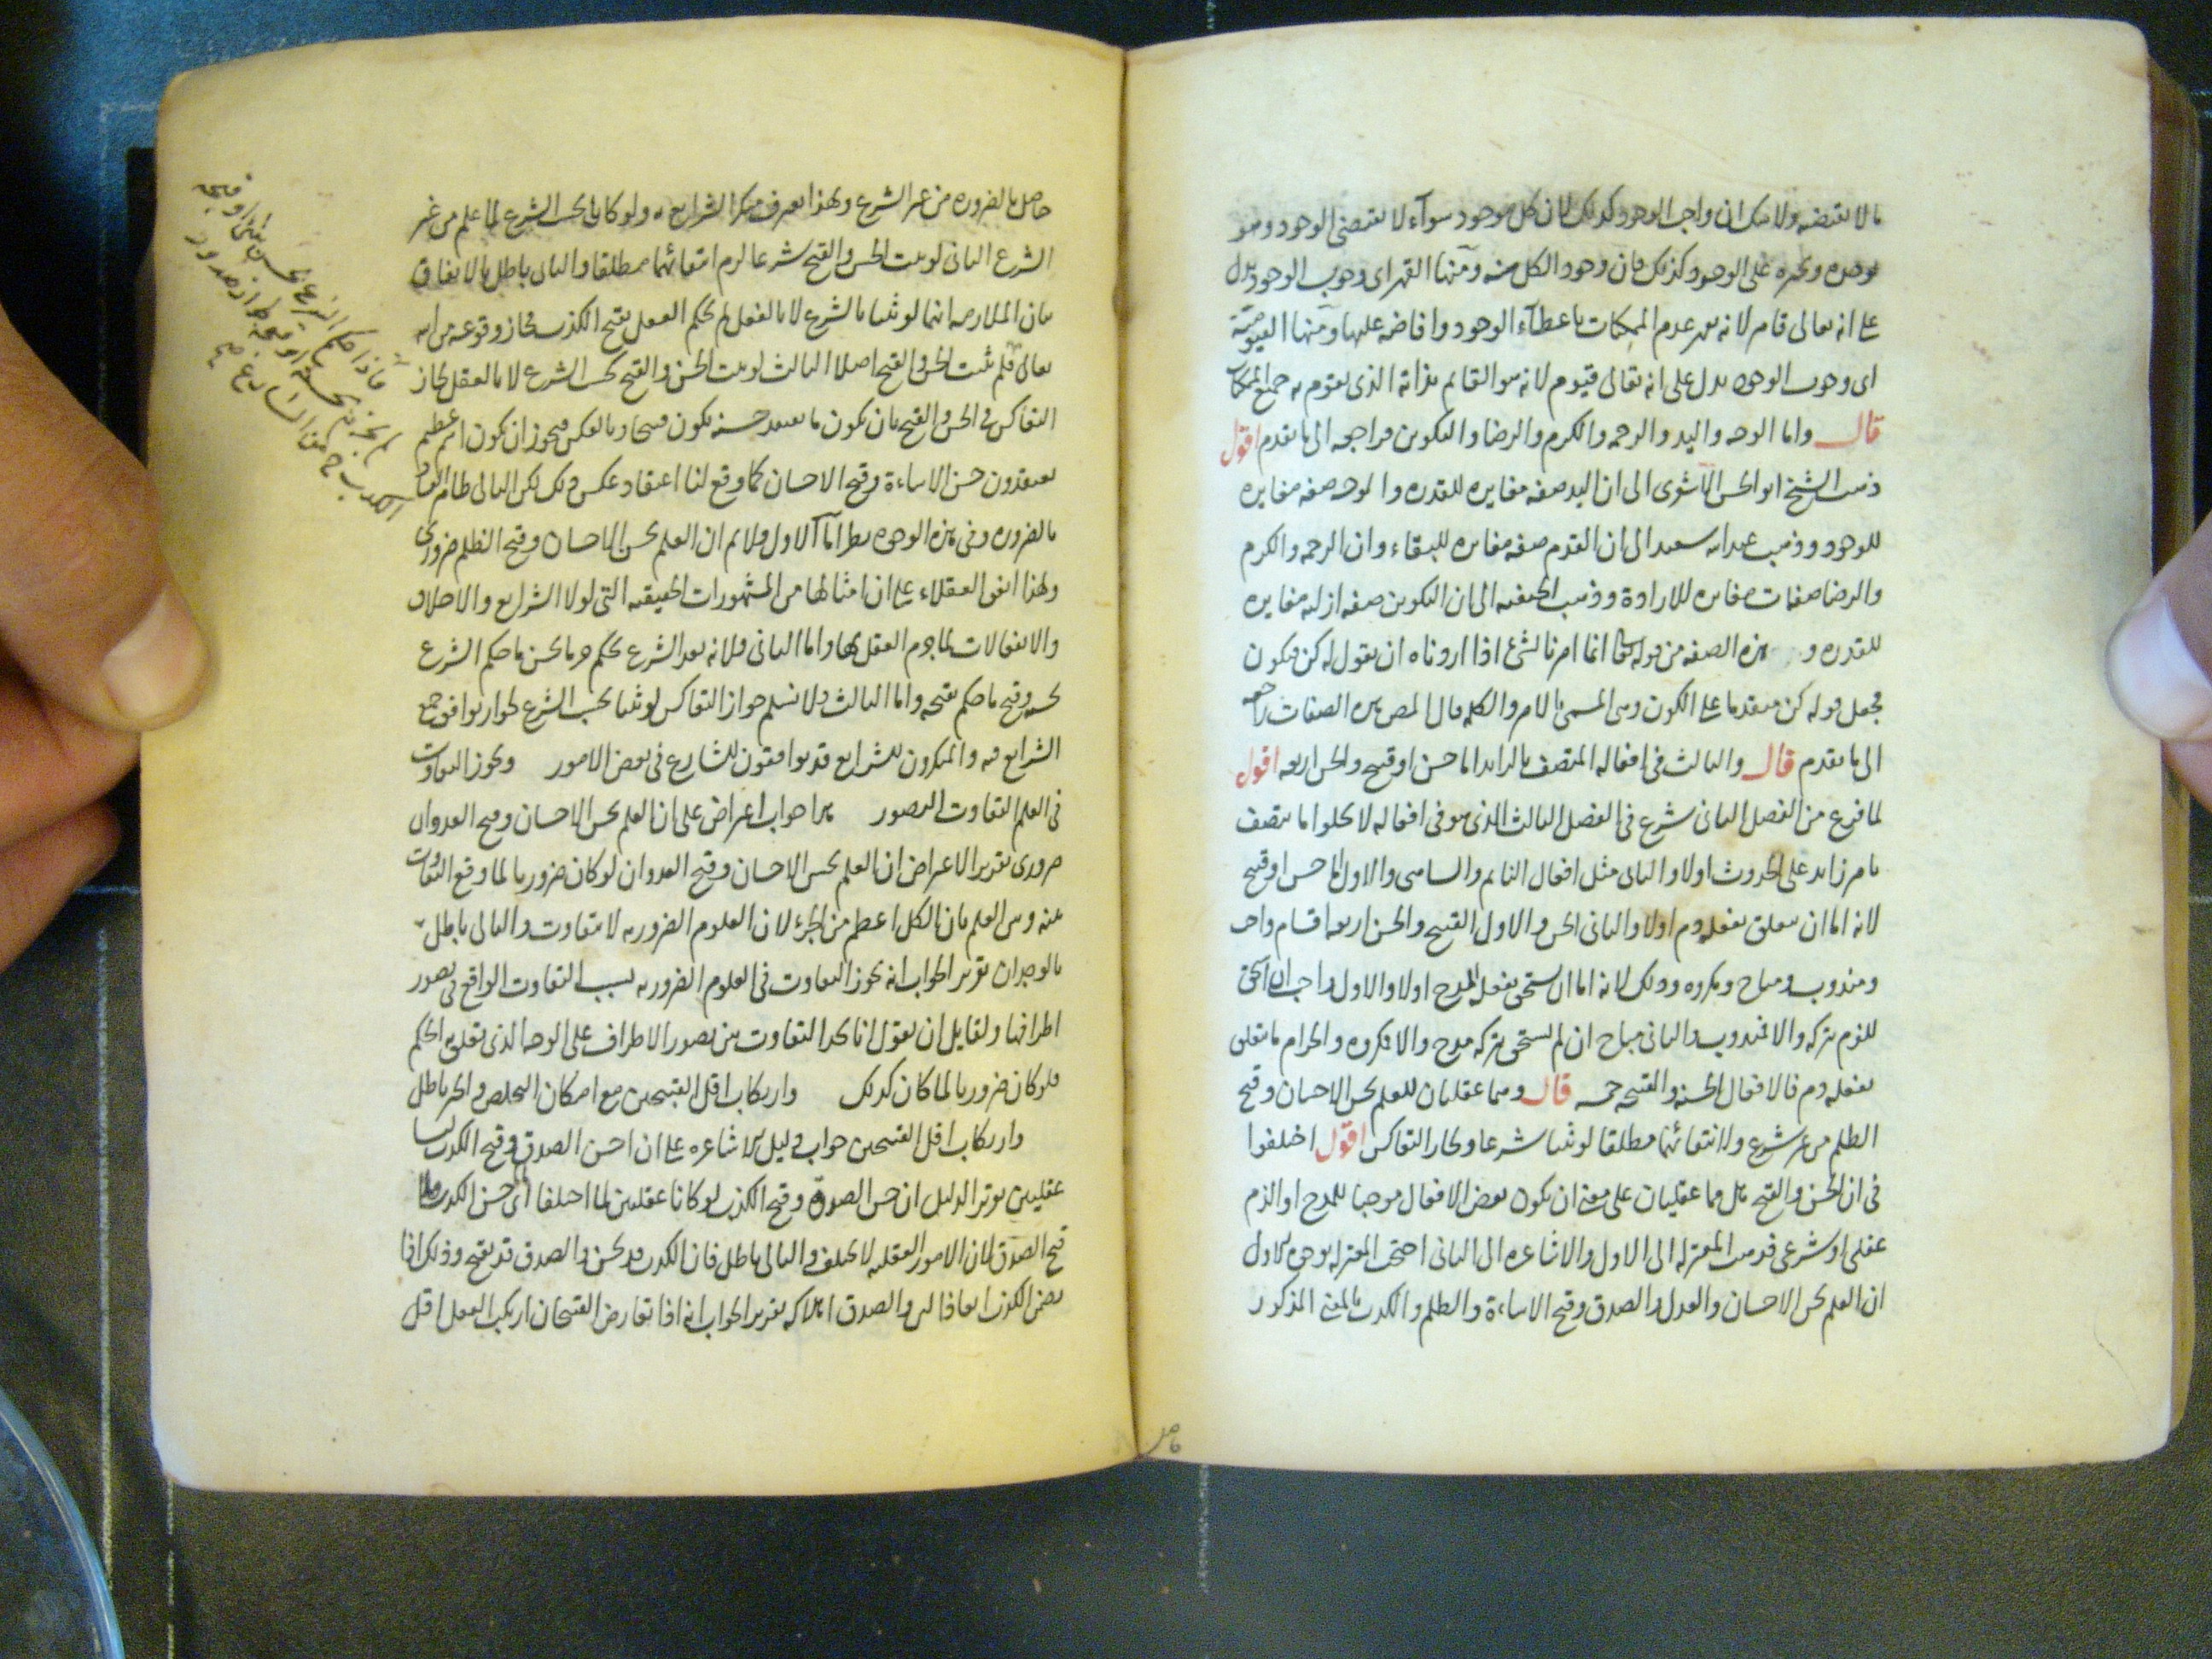 ما لا يقتضيه ولا شك ان واجب الوجود كذلك لان كل موجود سواء لا يقتضي الوجود وهو
بوجوده وخيره على الوجود كذلك فان وجود الكل منه ومنها القهر اى وجوب الوجود يدل
على انه تعالى قاهر لانه يقهر عدم الممكنات باعطاء الوجود وافاضه عليها ومنها القيومية
اى وجوب الوجود يدل على انه تعالى قيوم لانه هو القائم بذاته الذى يقوم به جميع الممكنات
قال واما الوجه واليد والرحمه والكرم والرضا والتكوين فراجعه الى ما تقدم اقول
ذهب الشيخ ابو الحسن الاشعرى الى ان اليد صفه مغايره للقدره والوجه صفه مغايره
للوجود وذهب عبد الله سعيد الى ان القدم صفه مغايره للبقاء وان الرحمه والكرم
والرضا صفات مغايره للارادة وذهب الحنفيه الى ان التكوين صفه ازليه مغايره
للقدره و هذه الصفه من قوله تعالى انما امرنا لشئ اذا اردناه ان نقول له كن فيكون
فجعل قوله كن متقدما على الكون وهى المسمى بالامر والكلمه قال المص هذه الصفات راجعه
الى ما تقدم قال والثالث فى افعاله المتصف بالزايد اما حسن او قبيح والحسن اربعه اقول
لما فرغ من الفصل الثانى شرع فى الفصل الثالث الذى هو فى افعاله لا يخلوا ما يتصف
بامر زايد على الحدوث اولا والثانى مثل افعال النايم والساهى والاول اما حسن او قبيح
لانه اما ان يتعلق بفعله ذم اولا والثانى الحسن والاول القبيح والحسن اربعه اقسام واجب
ومندوب ومباح ومكروه وذلك لانه اما ان يستحق بفعله المدح اولا والاول واجب ان استحق
للذم بتركه والا فمندوب والثانى مباح ان لم يستحق بتركه مدح والا فمكروه والحرام ما يتعلق
بفعله ذم فالافعال الحسنه والقبيحه خمسه قال وهما عقليان للعلم بحسن الاحسان وقبح
الظلم من غير شرع ولانتفائهما مطلقا لو ثبتا شرعا ولجاز التعاكس اقول اختلفوا
فى ان الحسن والقبح هل هما عقليان على معنى ان يكون بعض الافعال موجبا للمدح او الذم
عقلى او شرعى فذهب المعتزله الى الاول والاشاعره الى الثانى احتجت المعتزله بوجوه الاول
ان العلم بحسن الاحسان والعدل والصدق وقبح الاساءة والظلم والكذب بالمعنى المذكور
حاصل
حاصل بالضروره من غير الشرع ولهذا يعرف منكر الشرايع ولو كانا بحسب الشرع لما علم من غير
الشرع الثانى لو ثبت الحسن والقبح شرعا لزم انتفائهما مطلقا والتالى باطل بالاتفاق
بيان الملازمه انهما لو ثبتا بالشرع لا بالعقل لم يحكم العقل بقبح الكذب فجاز وقوعه من الله
تعالى فلم يثبت الحسن والقبح اصلا الثالث لو ثبت الحسن والقبح بحسب الشرع لا بالعقل لجاز
التعاكس فى الحسن والقبح بان يكون ما يعتقد حسنه يكون قبيحا وبالعكس فيجوز ان يكون امم عظيم
يعتقدون حسن الاساءة وقبح الاحسان كما وقع لنا اعتقاد عكس ذلك لكن التالى ظاهر الفساد
بالضروره وفى هذه الوجوه نظر اما الاول فلا نم ان العلم بحسن الاحسان وقبح الظلم ضرورى
ولهذا اتفق العقلاء على ان امثالها من المشهورات الحقيقيه التى لولا الشرايع والاخلاق
والانفعالات لما جزم العقل بها واما الثانى فلانه بعد الشرع يحكم جزما بحسن ما حكم الشرع
بحسنه وقبح ما حكم بقبحه واما الثالث فلا نسلم جواز التعاكس لو ثبتا بحسب الشرع لجواز توافق جميع
الشرايع فيه والمنكرون للشرايع قد يوافقون للشارع فى بعض الامور ويجوز التفاوت
فى العلم لتفاوت التصور هذا جواب اعتراض على ان العلم بحسن الاحسان وقبح العدوان
ضرورى تقرير الاعتراض ان العلم بحسن الاحسان وقبح العدوان لو كان ضروريا لما وقع التفاوت
بينه وبين العلم بان الكل اعظم من الجزء لان العلوم الضروريه لا تتفاوت والتالى باطل
بالوجدان تقرير الجواب انه يجوز التفاوت فى العلوم الضروريه بسبب التفاوت الواقع فى تصور
اطرافها ولقايل ان يقول انا نجد التفاوت بين تصور الاطراف على الوجه الذى يتعلق به الحكم
فلو كان ضروريا لما كان كذلك وارتكاب اقل القبيحين مع امكان التخلص والجبر باطل
وارتكاب اقل القبيحين جواب دليل الاشاعره على ان احسن الصدق وقبح الكذب ليسا
عقليين تقرير الدليل ان حسن الصدق وقبح الكذب لو كانا عقليين لما اختلفا اى حسن الكذب ولما
قبح الصدق لان الامور العقليه لا تختلف والتالى باطل فان الكذب قد يحسن والصدق قد يقبح وذلك اذا
تضمن الكذب انقاذ النبى والصدق اهلاكه تقرير الجواب انه اذا تعارض القبيحان ارتكب العقل اقل
فاذا حكم الشرع بحسن شئ او قبحه